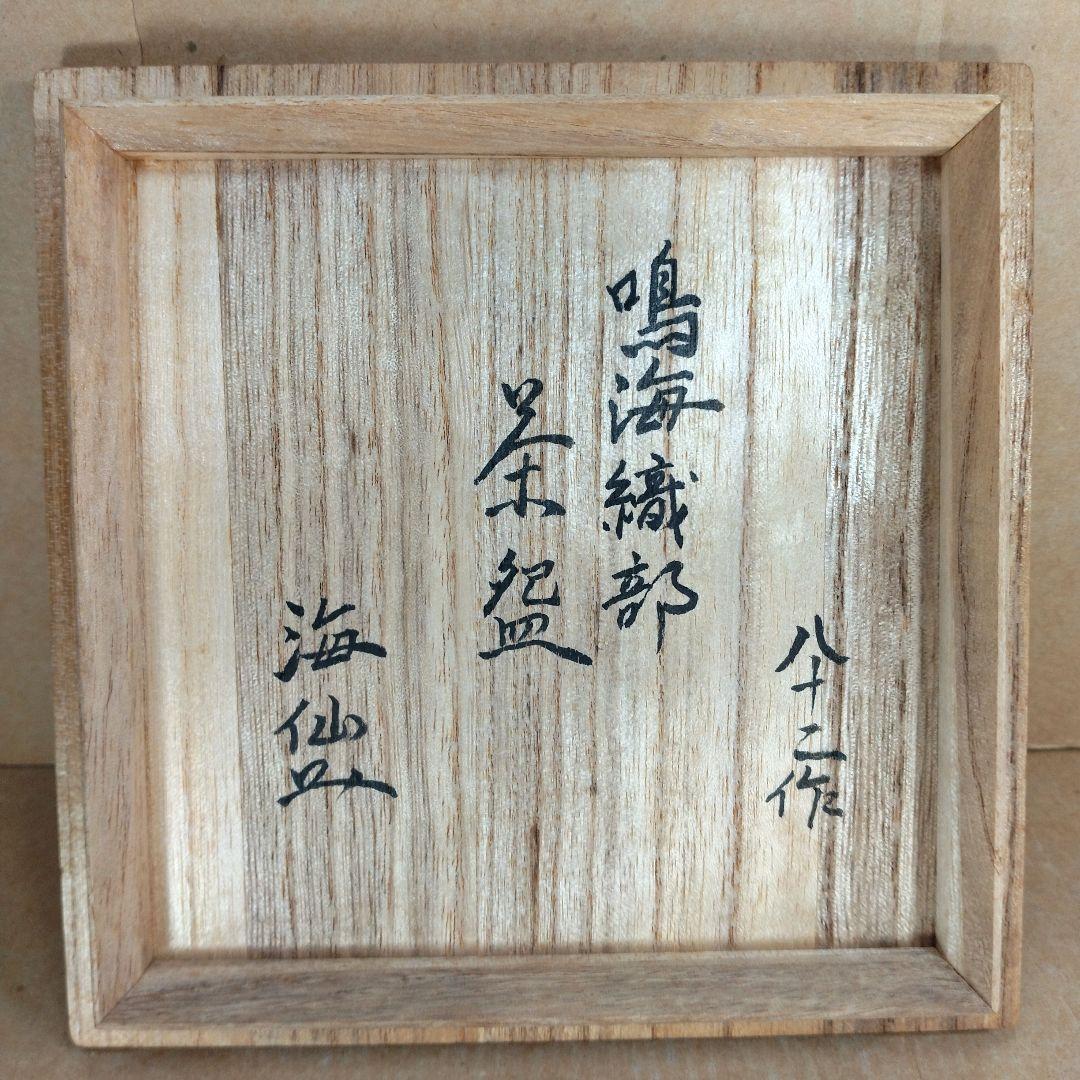 八十二作
鳴海織部
茶盌
海仙